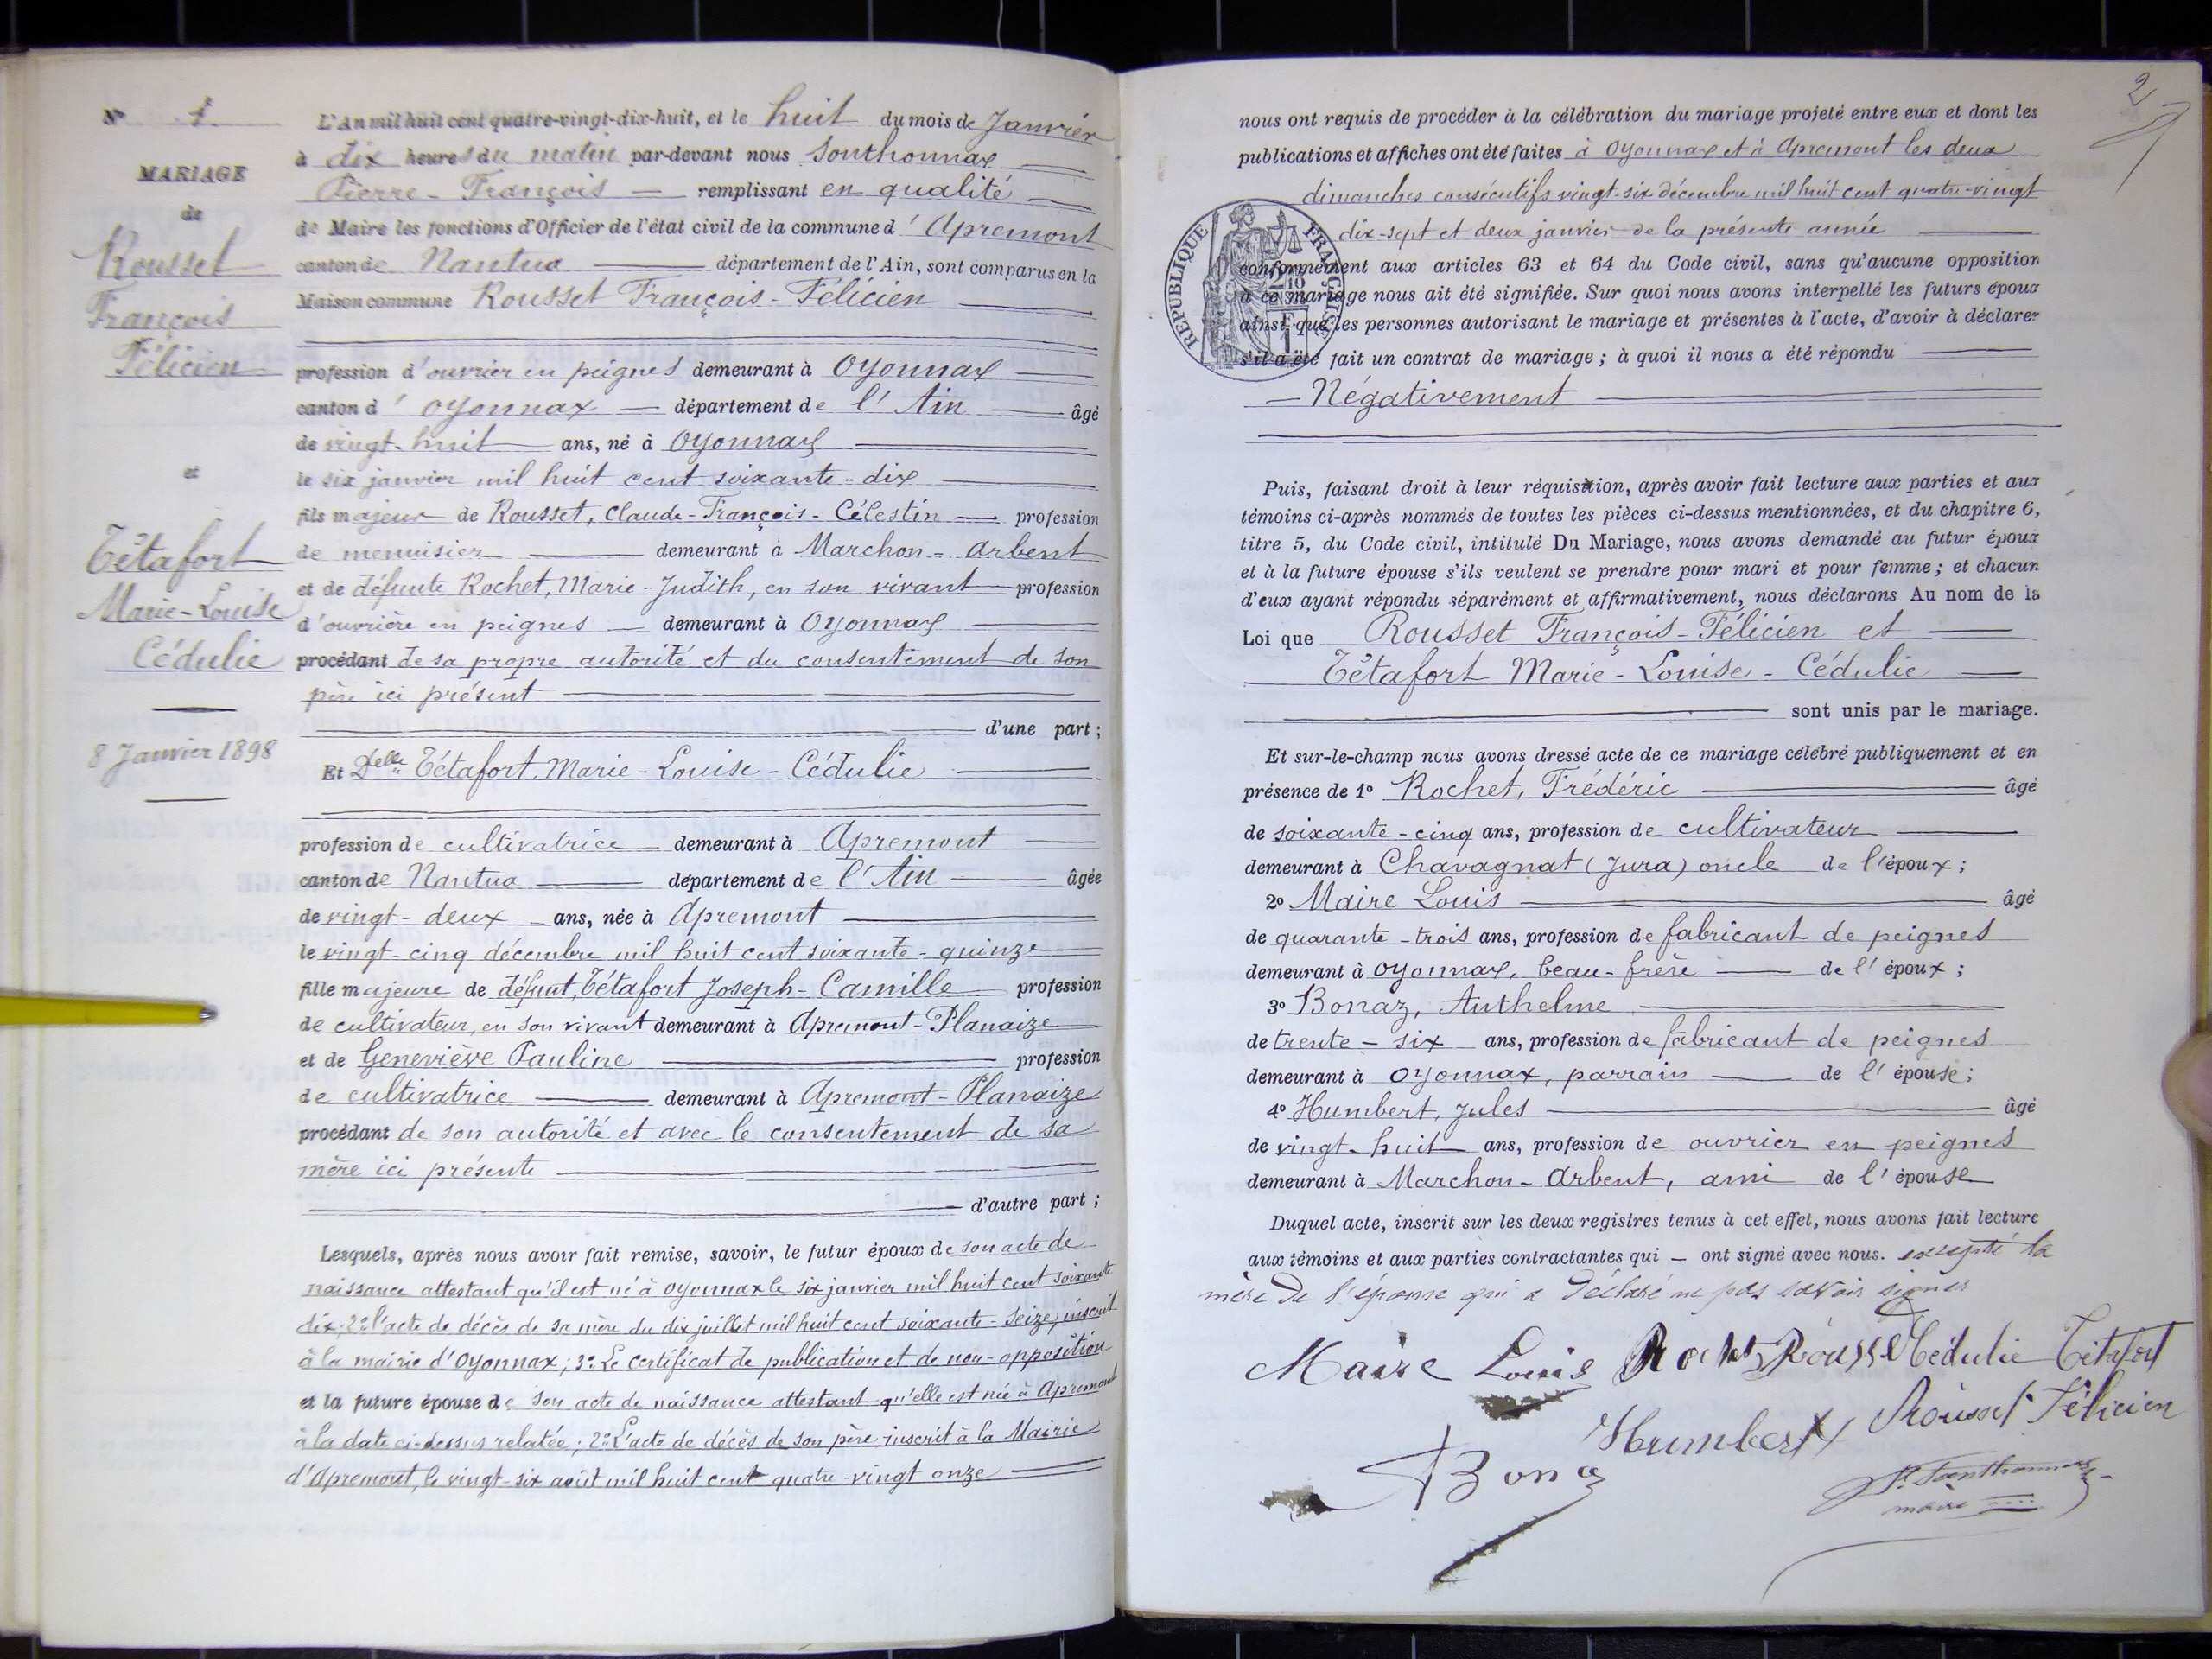 N° 1
MARIAGE
de
Rousset
François
Félicien
et
Tétafort
Marie-Louise
Cédulie
8 Janvier 1898
L'An mil huit cent quatre-vingt-dix-huit, et le huit du mois de Janvier
à dix heures du matin par-devant nous Sonthonnax
Pierre-François remplissant en qualité
de Maire les fonctions d'Officier de l'état civil de la commune d'Apremont
canton de Nantua département de l'Ain, sont comparus en la
Maison commune Rousset François-Félicien
profession d'ouvrier en peignes demeurant à Oyonnax
canton d'Oyonnax département de l'Ain âgé
de vingt-huit ans, né à Oyonnax
le six janvier mil huit cent soixante-dix
fils majeur de Rousset, Claude-François-Célestin profession
de menuisier demeurant à Marchon-Arbent
et de défunte Rochet, Marie-Judith, en son vivant profession
d'ouvrière en peignes demeurant à Oyonnax
procédant de sa propre autorité et du consentement de son
père ici présent
d'une part ;
Et Delle Tétafort, Marie-Louise-Cédulie
profession de cultivatrice demeurant à Apremont
canton de Nantua département de l'Ain âgée
de vingt-deux ans, née à Apremont
le vingt-cinq décembre mil huit cent soixante-quinze
fille majeure de défunt, Tétafort Joseph-Camille profession
de cultivateur, en son vivant demeurant à Apremont-Planaize
et de Geneviève Pauline profession
de cultivatrice demeurant à Apremont-Planaize
procédant de son autorité et avec le consentement de sa
mère ici présente
d'autre part ;
Lesquels, après nous avoir fait remise, savoir, le futur époux de son acte de
naissance attestant qu'il est né à Oyonnax le six janvier mil huit cent soixante
dix ; 2° l'acte de décès de sa mère du dix juillet mil huit cent soixante-seize, inscrit
à la mairie d'Oyonnax ; 3° Le certificat de publication et de non-opposition
et la future épouse de son acte de naissance attestant qu'elle est née à Apremont
à la date ci-dessus relatée ; 2° L'acte de décès de son père inscrit à la Mairie
d'Apremont, le vingt-six août mil huit cent quatre-vingt onze
2
nous ont requis de procéder à la célébration du mariage projeté entre eux et dont les
publications et affiches ont été faites à Oyonnax et à Apremont les deux
dimanches consécutifs vingt-six décembre mil huit cent quatre-vingt
dix-sept et deux janvier de la présente année
RÉPUBLIQUE FRANÇAISE
conformément aux articles 63 et 64 du Code civil, sans qu'aucune opposition
à ce mariage nous ait été signifiée. Sur quoi nous avons interpellé les futurs époux
ainsi que les personnes autorisant le mariage et présentes à l'acte, d'avoir à déclarer
s'il a été fait un contrat de mariage ; à quoi il nous a été répondu
Négativement
Puis, faisant droit à leur réquisition, après avoir fait lecture aux parties et aux
témoins ci-après nommés de toutes les pièces ci-dessus mentionnées, et du chapitre 6,
titre 5, du Code civil, intitulé Du Mariage, nous avons demandé au futur époux
et à la future épouse s'ils veulent se prendre pour mari et pour femme ; et chacun
d'eux ayant répondu séparément et affirmativement, nous déclarons Au nom de la
Loi que Rousset François-Félicien et
Tétafort Marie-Louise-Cédulie
sont unis par le mariage.
Et sur-le-champ nous avons dressé acte de ce mariage célébré publiquement et en
présence de 1° Rochet, Frédéric âgé
de soixante-cinq ans, profession de cultivateur
demeurant à Chavagnat (Jura) oncle de l'époux ;
2° Maire Louis âgé
de quarante-trois ans, profession de fabricant de peignes
demeurant à Oyonnax, beau-frère de l'époux ;
3° Bonaz, Anthelme
de trente-six ans, profession de fabricant de peignes
demeurant à Oyonnax, parrain de l'épouse ;
4° Humbert, Jules âgé
de vingt-huit ans, profession de ouvrier en peignes
demeurant à Marchon-Arbent, ami de l'épouse
Duquel acte, inscrit sur les deux registres tenus à cet effet, nous avons fait lecture
aux témoins et aux parties contractantes qui ont signé avec nous. excepté la
mère de l'épouse qui a déclaré ne pas savoir signer
Maire Louis Rochet Rousset Cédulie Tétafort
Humbert Rousset Félicien
Bonaz
P. Sonthonnax
maire